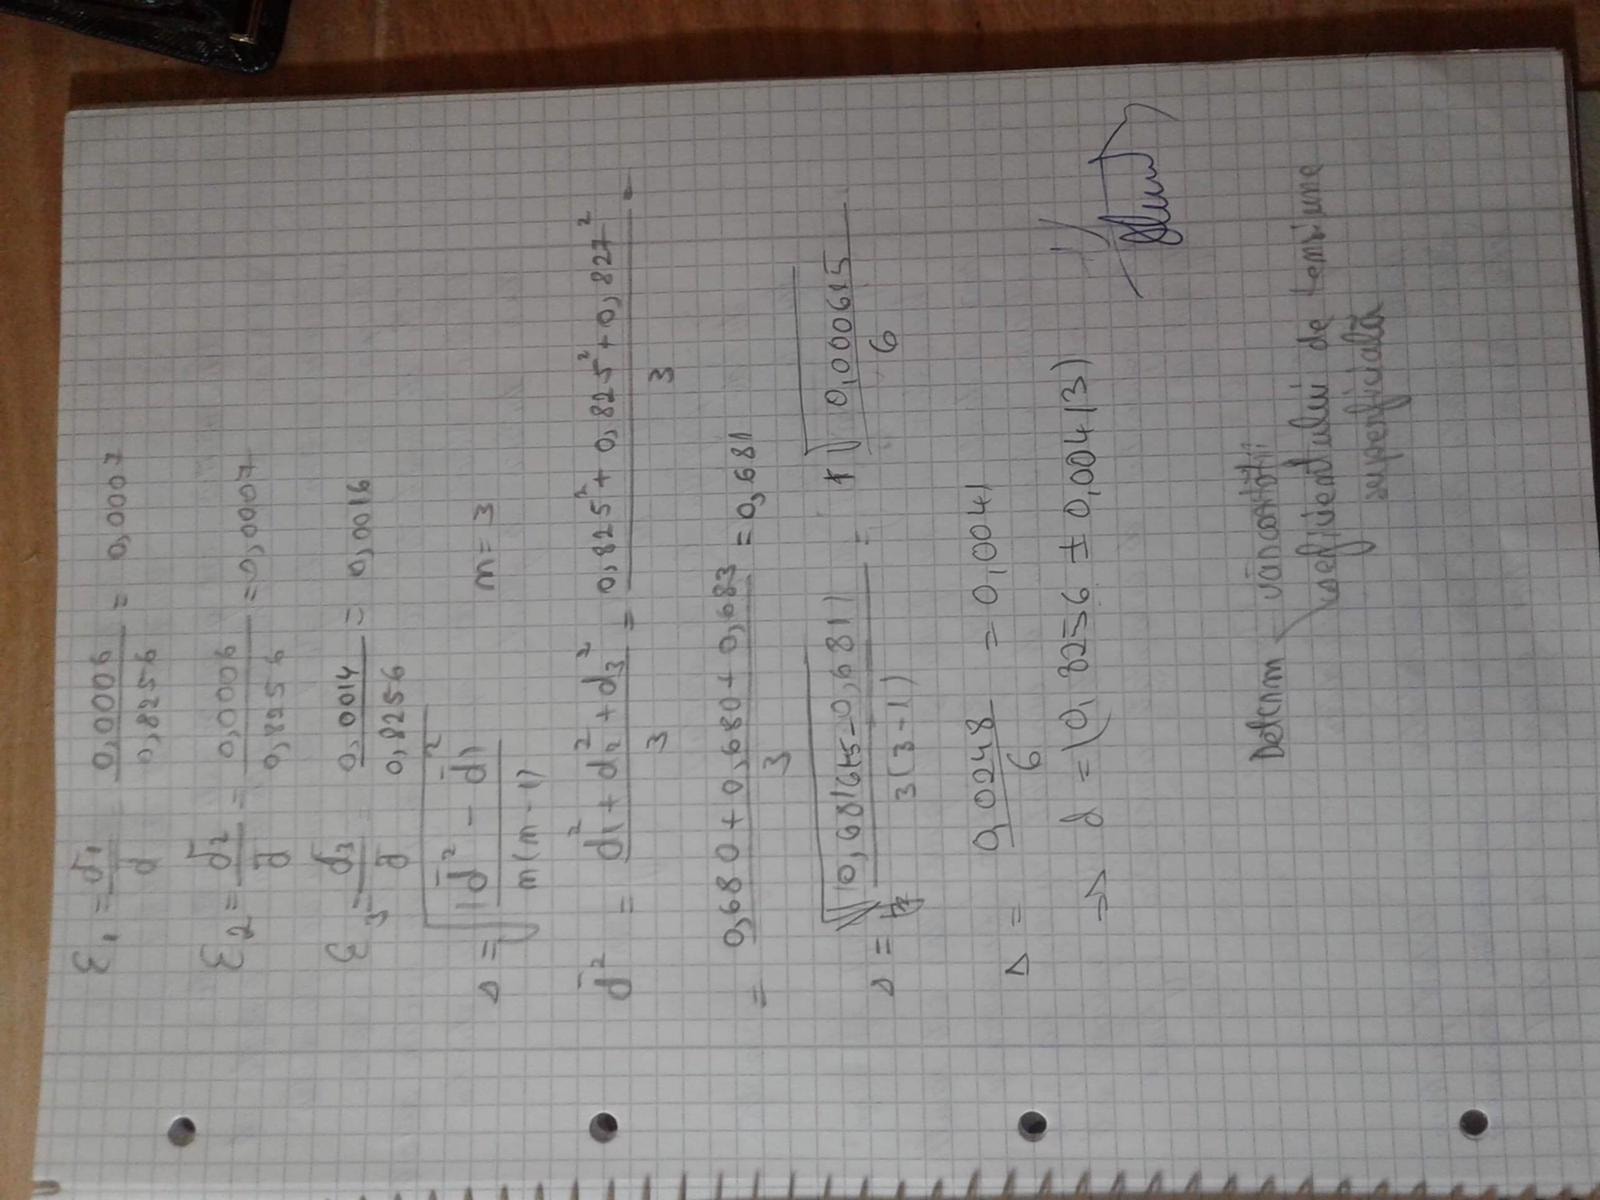 ε₁ = δ₁/d̄ = 0,0006/0,8256 = 0,0007
ε₂ = δ₂/d̄ = 0,0006/0,8256 = 0,0007
ε₃ = δ₃/d̄ = 0,0014/0,8256 = 0,0016
Δ = √(|d̄² - d̄²|/m(m-1)) m = 3
d̄² = (d₁² + d₂² + d₃²)/3 = (0,825² + 0,825² + 0,827²)/3
= (0,680 + 0,680 + 0,683)/3 = 0,681
Δ = √(|0,681615 - 0,681|/3(3-1)) = √(0,000615/6)
Δ = 0,0248/6 = 0,0041
=> d = (0,8256 ± 0,00413)
Determ
de tensiune
superficială